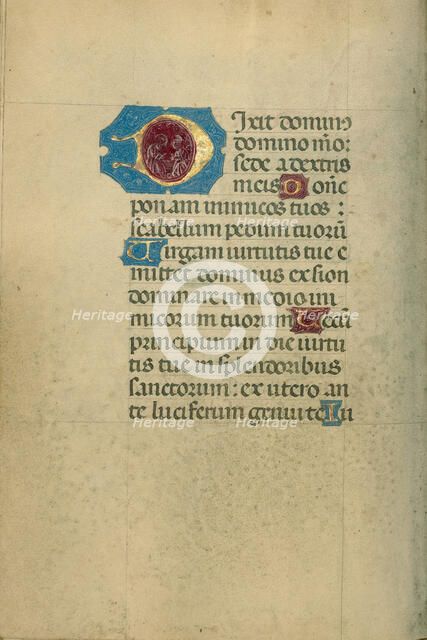 Dixit dominus
domino meo:
sede a dextris
meis Donec
ponam inimicos tuos:
scabellum pedum tuorũ
Uirgam uirtutis tue e
mittet dominus ex sion
dominare in medio ini
micorum tuorum Tecum
principium in die uirtu
tis tue in splendoribus
sanctorum: ex utero an
te luciferum genui te Iu